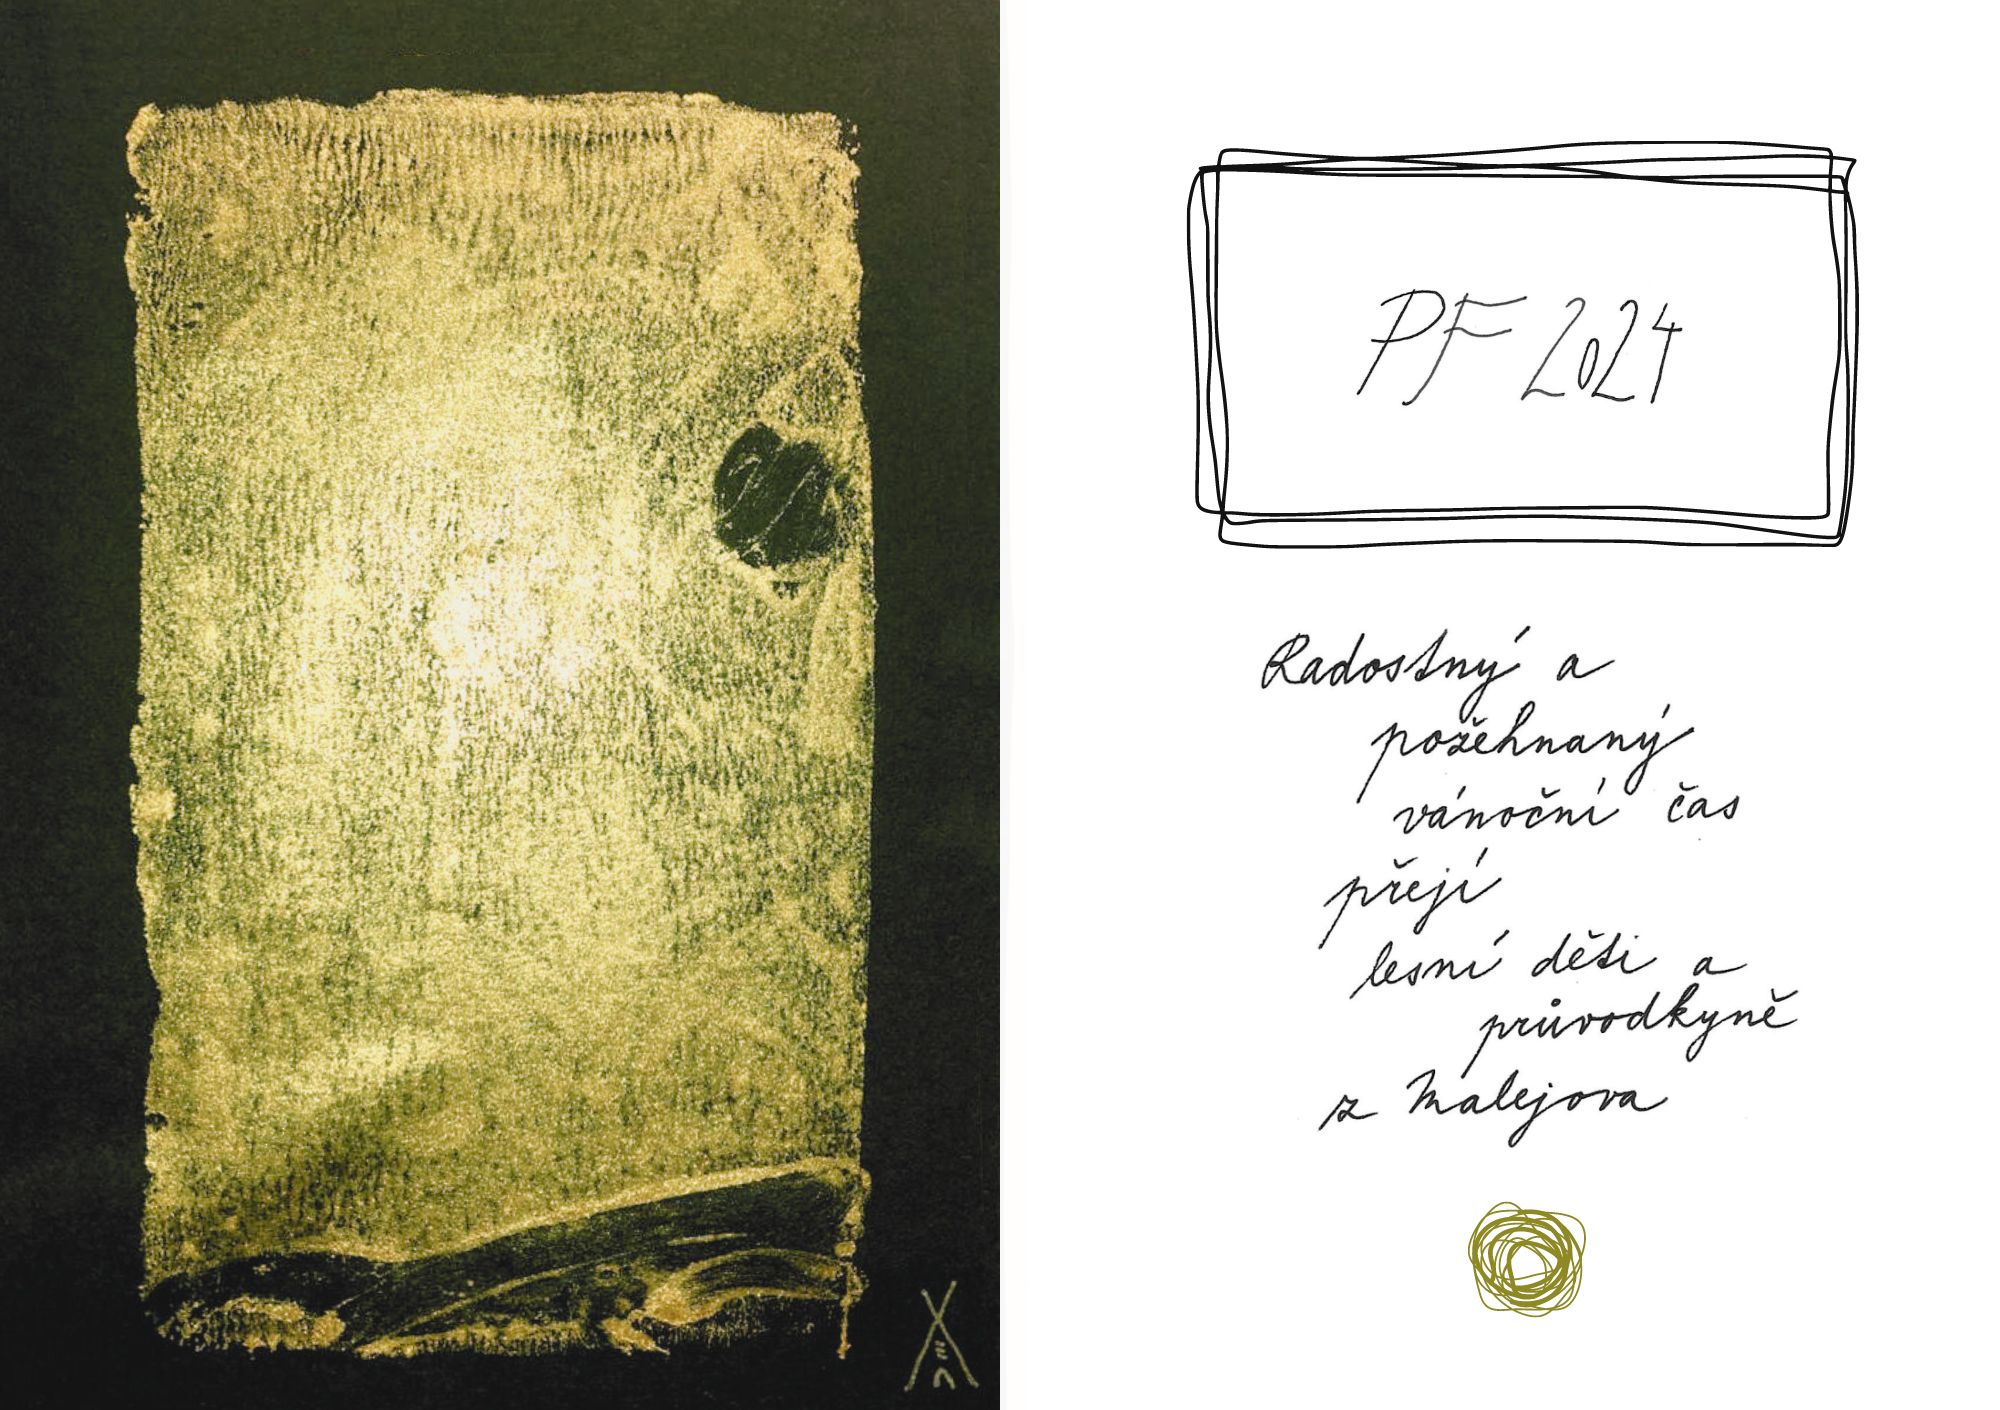 PF 2024
Radostný a
požehnaný
vánoční čas
přejí
lesní děti a
průvodkyně
z Malejova